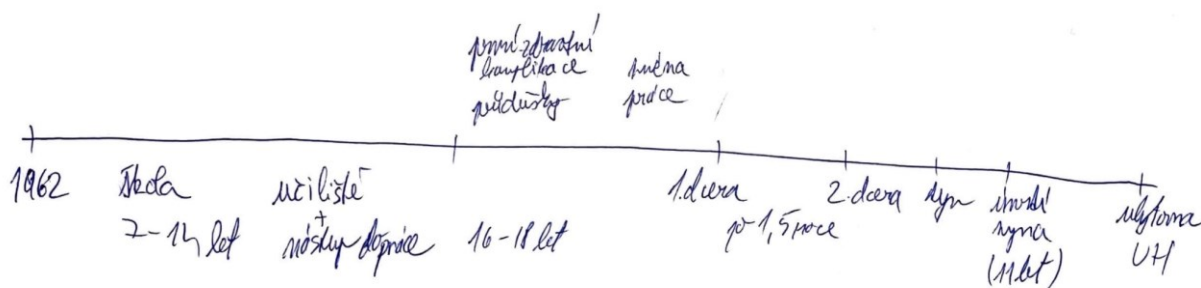 první zdravotní
komplikace
průdušky
změna
práce
1962
škola
7-14 let
učiliště
+
nástup do práce
16-18 let
1. dcera
po 1,5 roce
2. dcera
syn
úmrtí
syna
(11 let)
ubytovna
UH